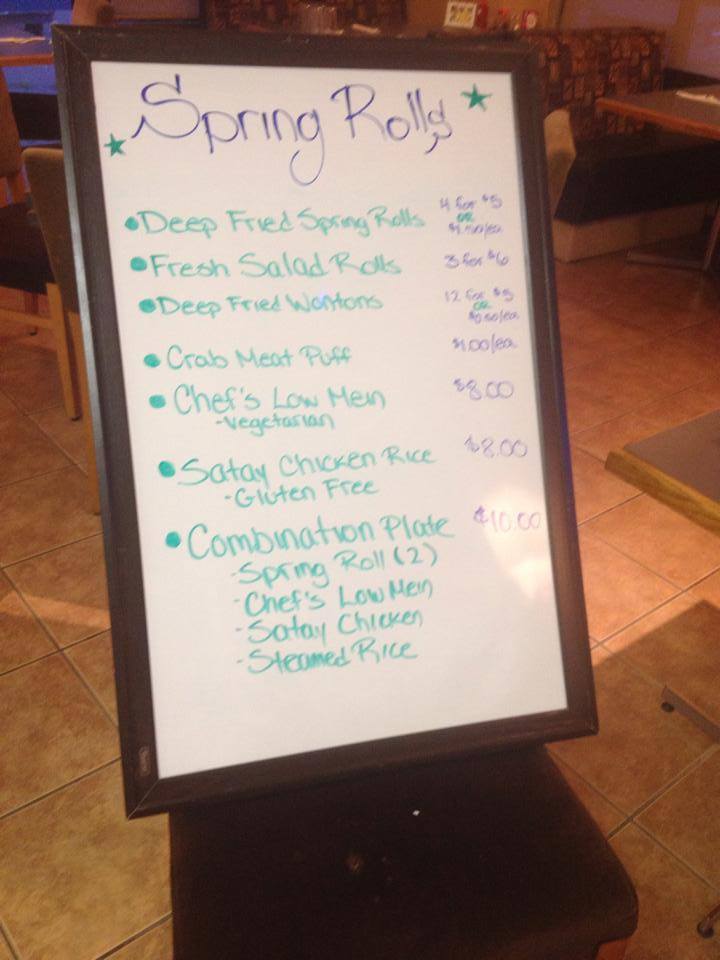 Spring Rolls
• Deep Fried Spring Rolls 4 for $5
OR
$1.50/ea
• Fresh Salad Rolls 3 for $6
• Deep Fried Wontons 12 for $5
OR
$0.50/ea
• Crab Meat Puff $1.00/ea
• Chef's Low Mein $8.00
-Vegetarian
• Satay Chicken Rice $8.00
-Gluten Free
• Combination Plate $10.00
-Spring Roll (2)
-Chef's Low Mein
-Satay Chicken
-Steamed Rice